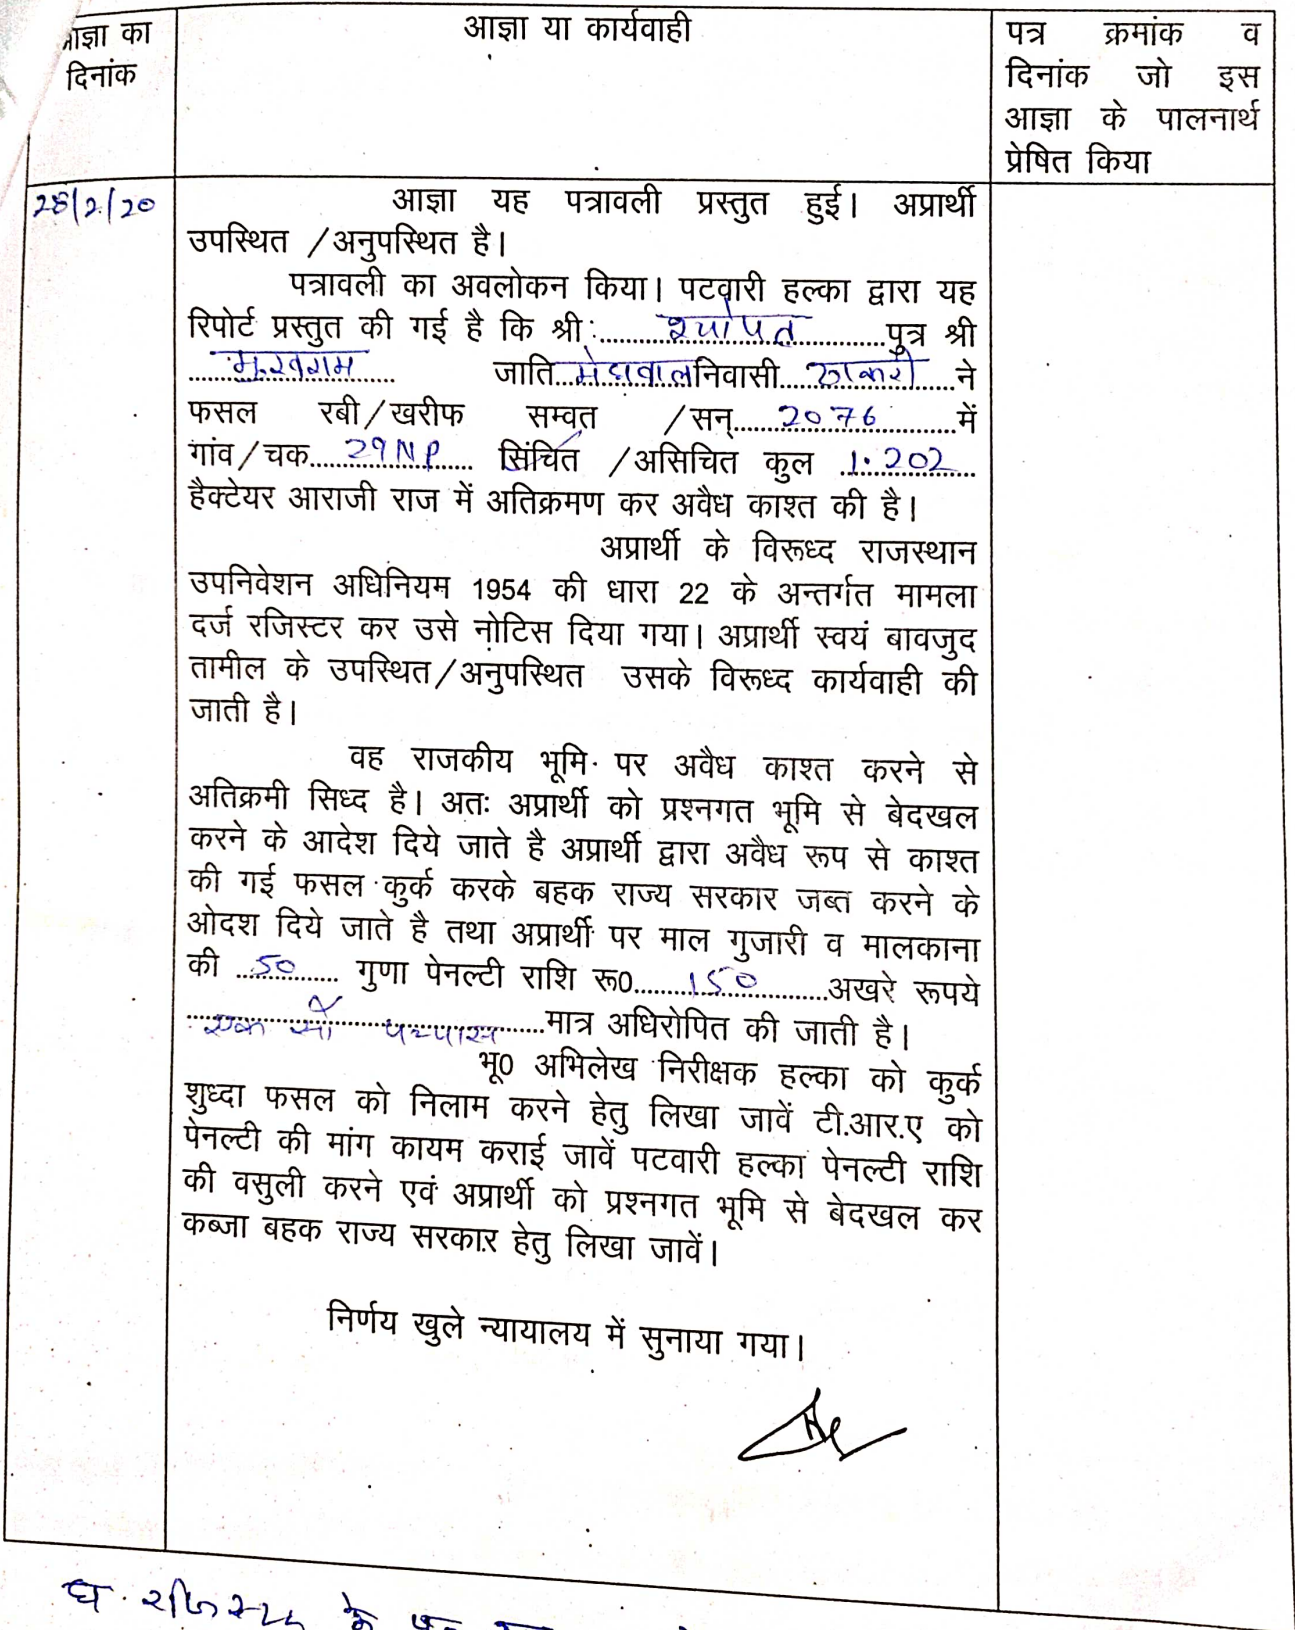 आज्ञा का
दिनांक
आज्ञा या कार्यवाही
पत्र क्रमांक व
दिनांक जो इस
आज्ञा के पालनार्थ
प्रेषित किया
28/2/20
आज्ञा यह पत्रावली प्रस्तुत हुई। अप्रार्थी
उपस्थित /अनुपस्थित है।
पत्रावली का अवलोकन किया। पटवारी हल्का द्वारा यह
रिपोर्ट प्रस्तुत की गई है कि श्री ............ श्योपत ............ पुत्र श्री
............ जाति ............ निवासी ............ ने
फसल रबी/खरीफ सम्वत /सन् ............ 2076 ............ में
गांव/चक ...... 29NP ...... सिंचित /असिचित कुल 1.202
हैक्टेयर आराजी राज में अतिक्रमण कर अवैध काश्त की है।
अप्रार्थी के विरूध्द राजस्थान
उपनिवेशन अधिनियम 1954 की धारा 22 के अन्तर्गत मामला
दर्ज रजिस्टर कर उसे नोटिस दिया गया। अप्रार्थी स्वयं बावजुद
तामील के उपस्थित/अनुपस्थित उसके विरूध्द कार्यवाही की
जाती है।
वह राजकीय भूमि पर अवैध काश्त करने से
अतिक्रमी सिध्द है। अतः अप्रार्थी को प्रश्नगत भूमि से बेदखल
करने के आदेश दिये जाते है अप्रार्थी द्वारा अवैध रूप से काश्त
की गई फसल कुर्क करके बहक राज्य सरकार जब्त करने के
ओदश दिये जाते है तथा अप्रार्थी पर माल गुजारी व मालकाना
की ...50...... गुणा पेनल्टी राशि रू0 ...... 150 ...... अखरे रूपये
एक सौ पच्चास ...... मात्र अधिरोपित की जाती है।
भू0 अभिलेख निरीक्षक हल्का को कुर्क
शुध्दा फसल को निलाम करने हेतु लिखा जावें टी.आर.ए को
पेनल्टी की मांग कायम कराई जावें पटवारी हल्का पेनल्टी राशि
की वसुली करने एवं अप्रार्थी को प्रश्नगत भूमि से बेदखल कर
कब्जा बहक राज्य सरकार हेतु लिखा जावें।
निर्णय खुले न्यायालय में सुनाया गया।